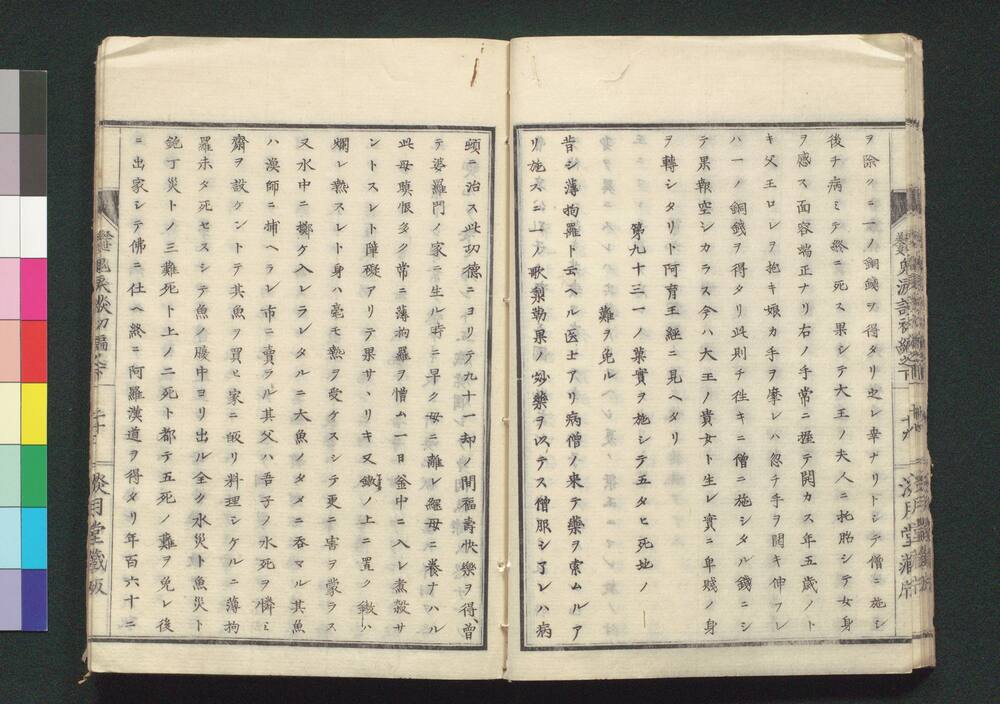 ヲ除クニ一ノ銅錢ヲ得タリ之レ幸ナリトシテ僧ニ施シ
後チ病ミテ終ニ死ス果シテ大王ノ夫人ニ託胎シテ女身
ヲ感ス面容端正ナリ右ノ手常ニ握テ開カス年五歳ノト
キ父王ロレヲ抱キ娘カ手ヲ摩レハ忽チ手ヲ開キ伸フレ
ハ一ノ銅錢ヲ得タリ此則チ往キニ僧ニ施シタル錢ニシ
テ果報空シカラス今ハ大王ノ貴女ト生レ實ニ卑賤ノ身
ヲ轉シタリト阿育王經ニ見ヘタリ
第九十三一ノ菓實ヲ施シテ五タヒ死地ノ
難ヲ免ル
昔シ薄拘羅ト云ヘル医士アリ病僧ノ来テ藥ヲ索ムルア
リ施スニ一ノ呵梨勒果ノ妙藥ヲ以テス僧服シ了レハ病
頓ニ治ス此功德ニヨリテ九十一劫ノ間福壽快樂ヲ得、曽
テ婆羅門ノ家ニ生ル時ニ早ク母ニ離レ繼母ニ養ナハル
此母瞋恨多ク常ニ薄拘羅ヲ憎ム一日釜中ニ入レ煮殺サ
ントスレト障礙アリテ果サヽリキ又鏉ノ上ニ置ク鏉ハ
爛レ熱スレト身ハ毫モ熱ヲ受ケスシテ更ニ害ヲ蒙ラス
又水中ニ擲ケ入レラレタルニ大魚ノタメニ吞マル其魚
ハ漁師ニ捕ヘラレ市ニ賣ラル其父ハ吾子ノ水死ヲ憐ミ
齋ヲ設ケントテ其魚ヲ買ヒ家ニ皈リ料理シケルニ薄拘
羅未タ死セスシテ魚ノ腹中ヨリ出ル全ク水災ト魚災ト
鉋丁災トノ三難死ト上ノ二死ト都テ五死ノ難ヲ免レ後
ニ出家シテ佛ニ仕ヘ終ニ阿羅漢道ヲ得タリ年百六十ニ